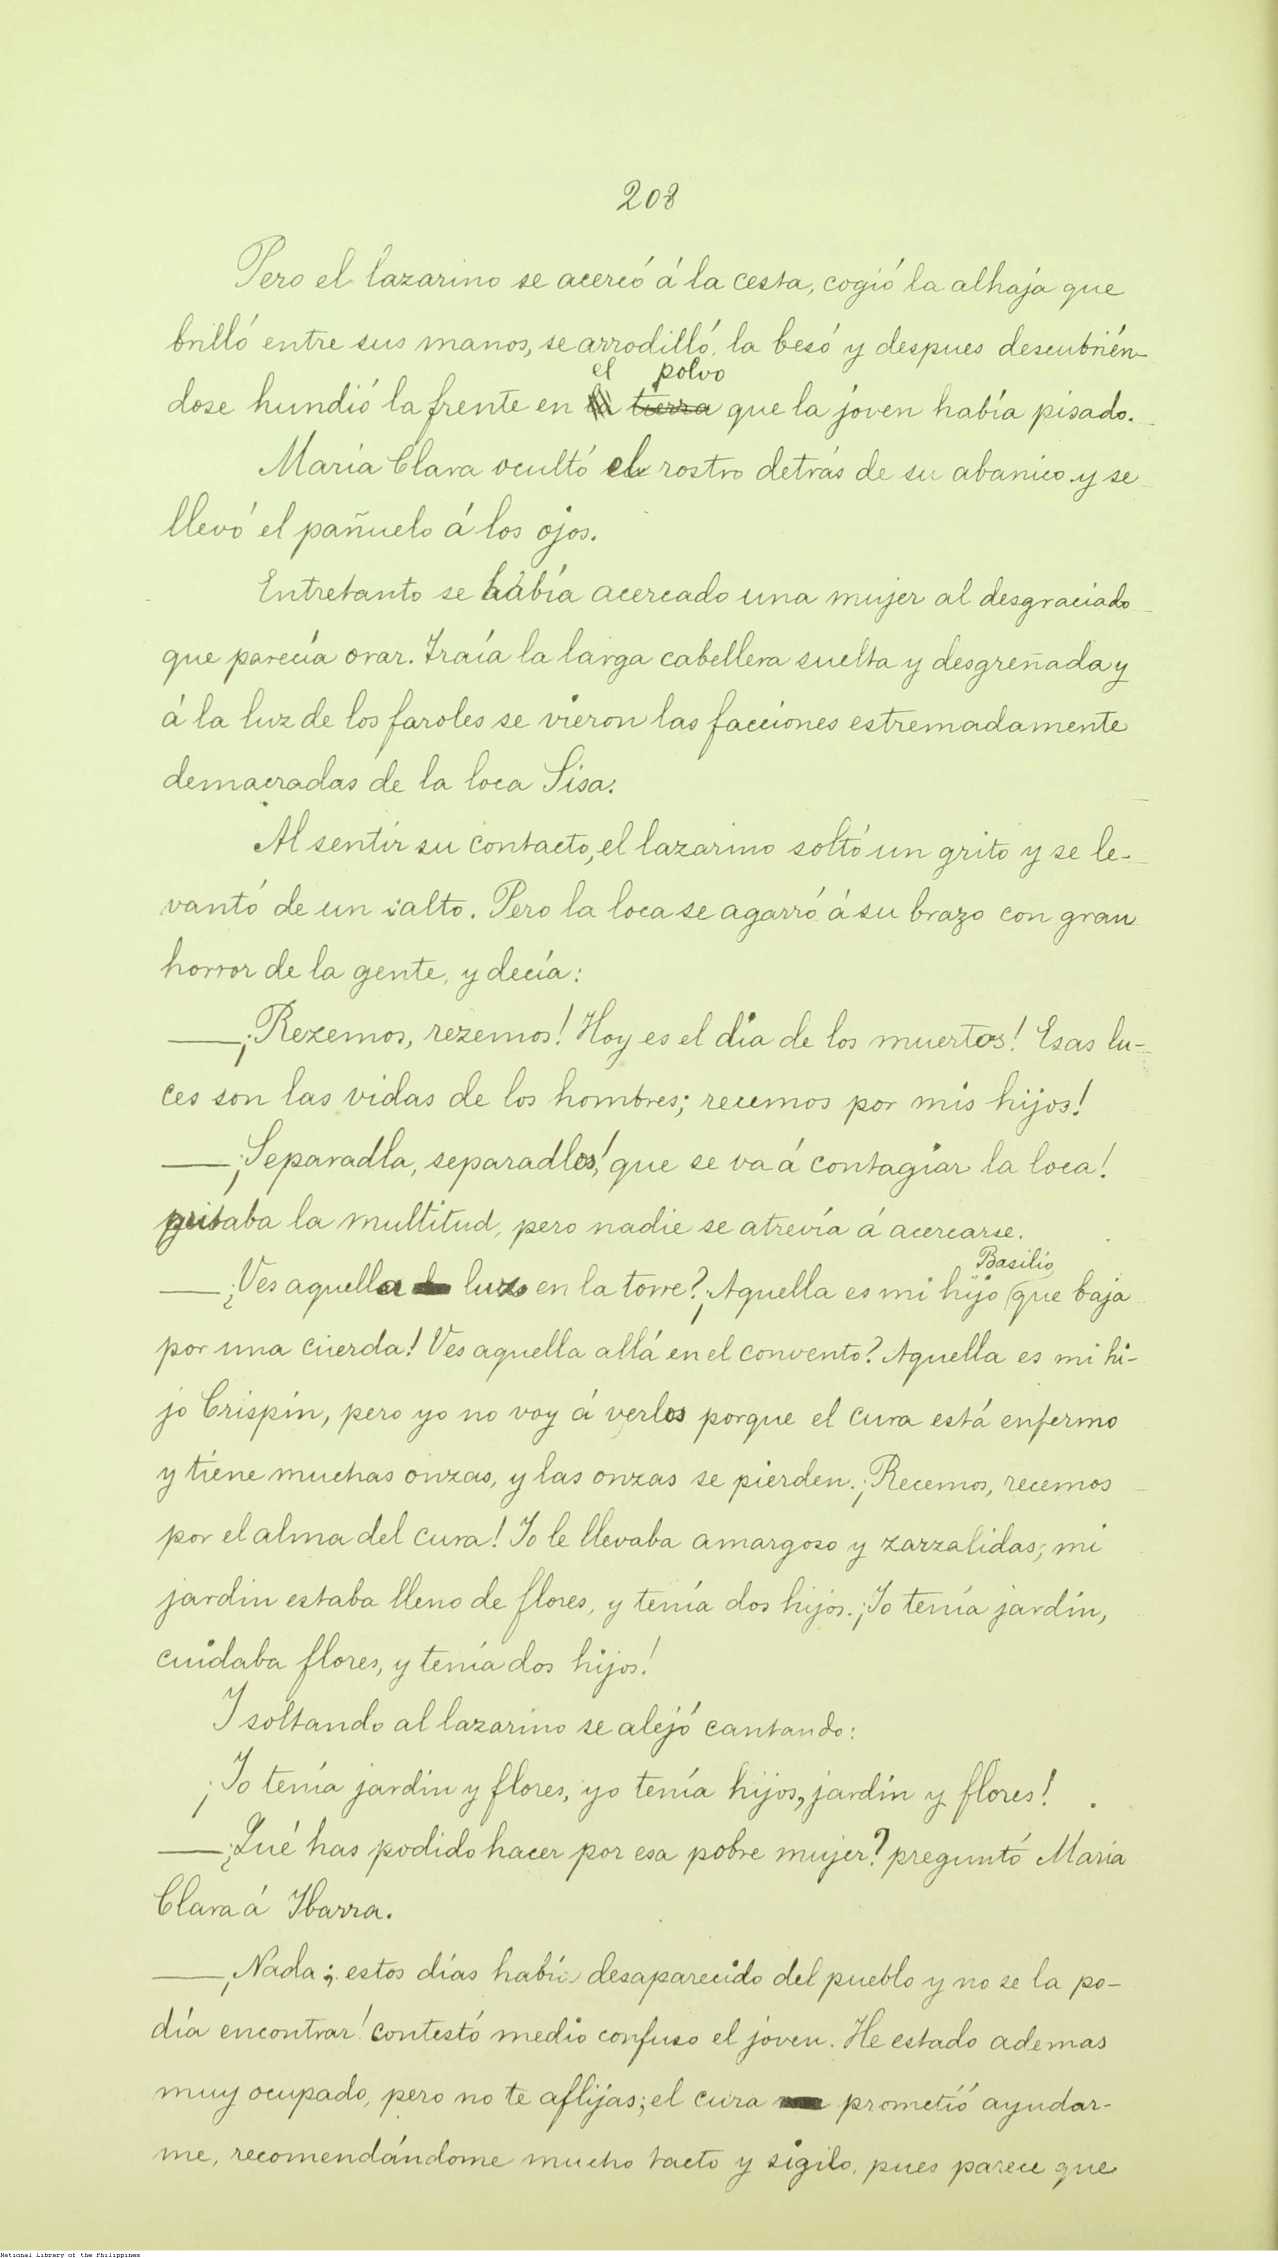 208
Pero el lazarino se acercó á la cesta, cogió la alhaja que
brilló entre sus manos, se arrodilló, la besó y despues descubrién-
el polvo
dose hundió la frente en la tierra que la joven había pisado.
María Clara ocultó el rostro detrás de su abanico y se
llevó el pañuelo á los ojos.
Entretanto se había acercado una mujer al desgraciado
que parecía orar. Traía la larga cabellera suelta y desgreñada y
á la luz de los faroles se vieron las facciones estremadamente
demacradas de la loca Sisa.
Al sentir su contacto, el lazarino soltó un grito y se le-
vantó de un salto. Pero la loca se agarró á su brazo con gran
horror de la gente, y decía:
—¡Rezemos, rezemos! Hoy es el día de los muertos! Esas lu-
ces son las vidas de los hombres; recemos por mis hijos!
—¡Separadla, separadlos! que se va á contagiar la loca!
gritaba la multitud, pero nadie se atrevía á acercarse.
Basilio
—¿Ves aquella luz en la torre? ¡Aquella es mi hijo que baja
por una cuerda! Ves aquella allá en el convento? Aquella es mi hi-
jo Crispín, pero yo no voy á verlos porque el cura está enfermo
y tiene muchas onzas, y las onzas se pierden. ¡Recemos, recemos
por el alma del cura! Yo le llevaba amargoso y zarzalidas; mi
jardin estaba lleno de flores, y tenía dos hijos. ¡Yo tenía jardín,
cuidaba flores, y tenía dos hijos!
Y soltando al lazarino se alejó cantando:
¡Yo tenía jardín y flores, yo tenía hijos, jardín y flores!
—¿Qué has podido hacer por esa pobre mujer? preguntó María
Clara á Ibarra.
—¡Nada; estos días había desaparecido del pueblo y no se la po-
día encontrar! contestó medio confuso el joven. He estado ademas
muy ocupado, pero no te aflijas; el cura prometió ayudar-
me, recomendándome mucho tacto y sigilo, pues parece que
National Library of the Philippines